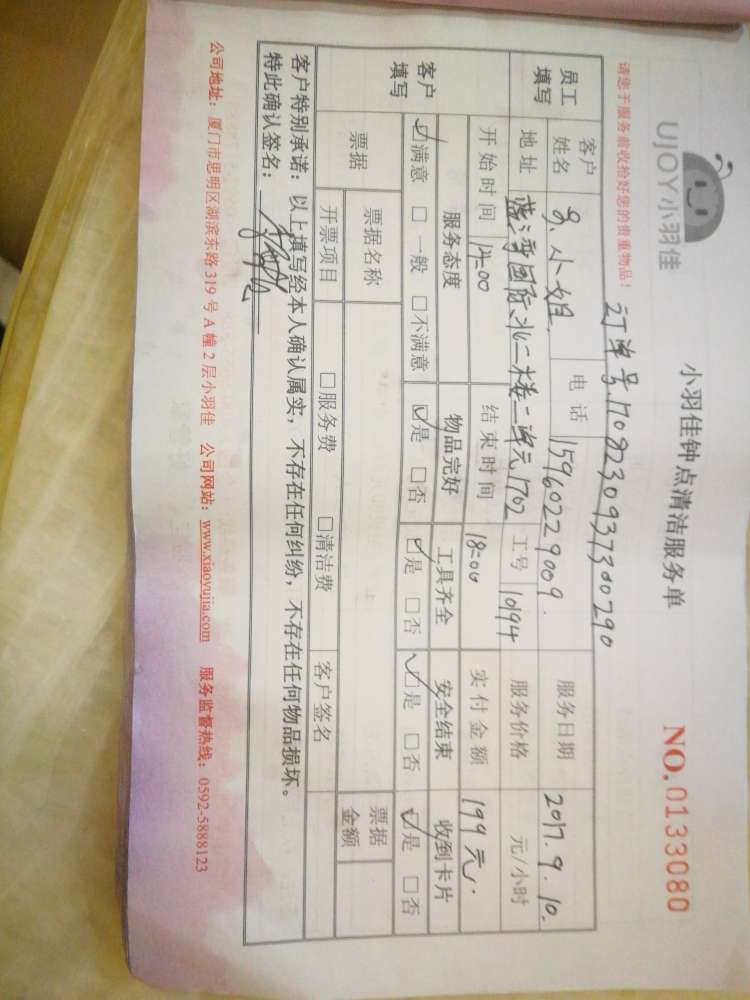 UJOY小羽佳
小羽佳钟点清洁服务单
NO.0133080
请您于服务前收拾好您的贵重物品！
订单号.1708230937300290
员工填写
客户姓名 小姐. 电话 15960229009. 服务日期 2017.9.10.
地址 蓝湾国际北二楼二单元1702 工号 10194 服务价格 元/小时
开始时间 14-00 结束时间 18-00 实付金额 199元.
客户填写
服务态度 物品完好 工具齐全 安全结束 收到卡片
☑满意 □一般 □不满意 ☑是 □否 ☑是 □否 ☑是 □否 ☑是 □否
票据 票据名称 票据金额
开票项目 □服务费 □清洁费 客户签名
客户特别承诺：以上填写经本人确认属实，不存在任何纠纷，不存在任何物品损坏。
特此确认签名：
公司地址：厦门市思明区湖滨东路319号A幢2层小羽佳 公司网站：www.xiaoyujia.com 服务监督热线：0592-5888123